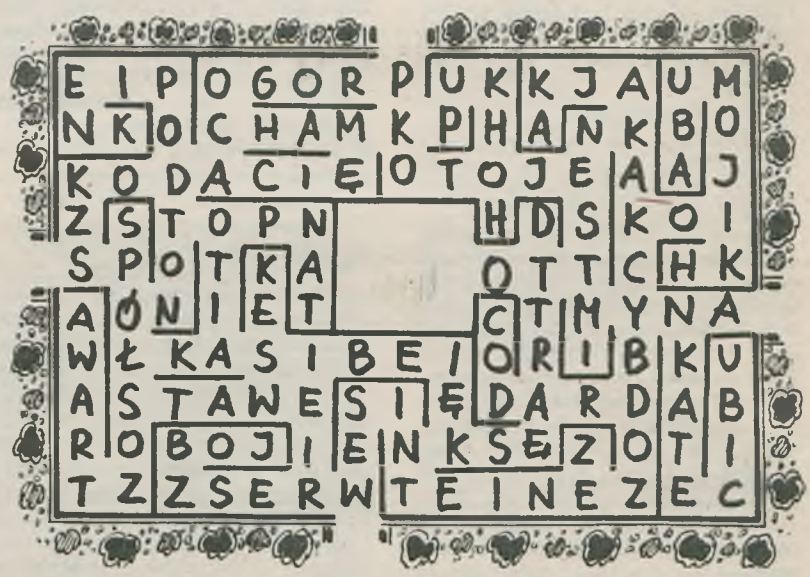 E I P O G O R P U K K J A U M
N K O C H A M K P H A N K B O
K O D A C I Ę O T O J E A A J
Z S T O P N H D S K O I
S P O T K A O T T C H K
A Ó N I E T C T M Y N A
W Ł K A S I B E I O R I B K U
A S T A W E S I Ę D A R D A B
R O B O J I E N K S Ę Z O T I
T Z Z S E R W T E I N E Z E C